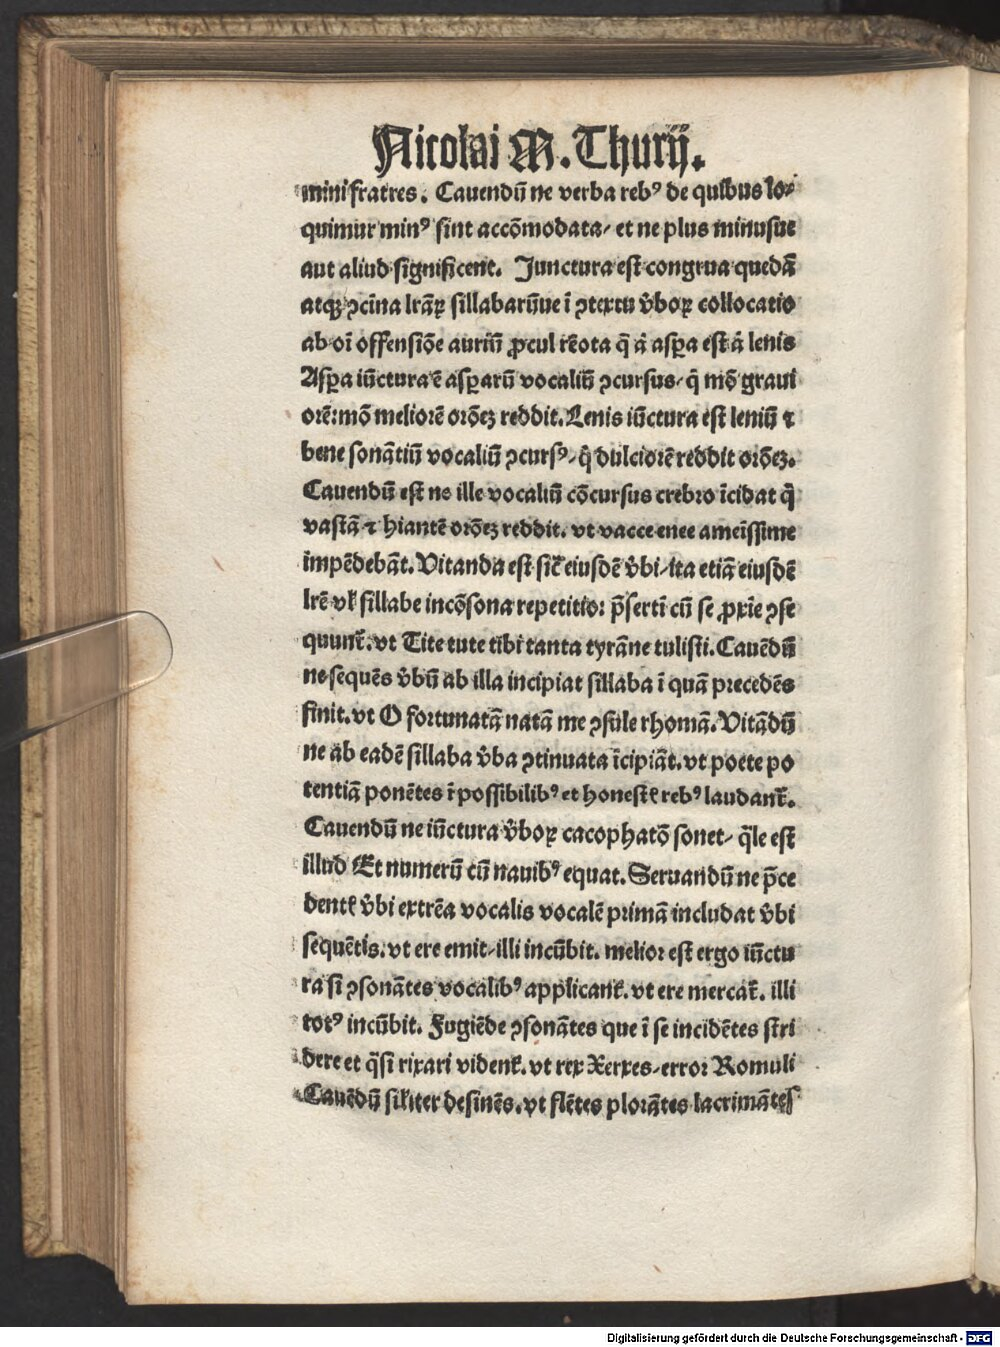 Nicolai M. Thurij.
mini fratres. Cauendū ne verba rebꝰ de quibus lo⸗
quimur minꝰ sint accōmodata/ et ne plus minusue
aut aliud significent. Junctura est congrua quedā
atqꝫ ↄcīna lr̄aꝝ sillabarūue ī ↄtextu v̄boꝝ collocatio
ab oī offensiōe auriū ꝓcul rēota q̄ ā asꝑa est ā lenis
Asꝑa iūctura ē asꝑarū vocaliū ↄcursus/ q̄ mō graui
orē: mō meliorē orōeꝫ reddit. Lenis iūctura est leniū ⁊
bene sonātiū vocaliū ↄcursꝰ/ q̄ dulciorē reddit orōeꝫ.
Cauendū est ne ille vocaliū cōcursus crebro īcidat q̄
vastā ⁊ hiantē orōeꝫ reddit. vt vacce enee ameīssime
impēdebāt. Vitanda est sic̄ eiusdē v̄bi/ ita etiā eiusdē
lr̄e vl̓ sillabe incōsona repetitio: p̄serti cū se ꝓxīe ↄse
quunt᷑. vt Tite tute tibi tanta tyrāne tulisti. Cauēdū
ne sequēs v̄bū ab illa incipiat sillaba ī quā precedēs
finit. vt O fortunatā natā me ↄsule rhomā. Vitādū
ne ab eadē sillaba v̄ba ↄtinuata īcipiāt. vt poete po
tentiā ponētes īpossibilibꝰ et honestꝭ rebꝰ laudant᷑.
Cauendū ne iūctura v̄boꝝ cacophatō sonet/ q̄le est
illud Et numerū cū nauibꝰ equat. Seruandū ne p̄ce
dentꝭ v̄bi extrēa vocalis vocalē primā includat v̄bi
sequētis. vt ere emit/ illi incūbit. melior est ergo iūctu
ra si ↄsonātes vocalibꝰ applicant᷑. vt ere mercat᷑. illi
totꝰ incūbit. Fugiēde ↄsonātes que ī se incidētes stri
dere et q̄si rixari vident᷑. vt rex Xerxes/ error Romuli
Cauēdū sil̓iter desinēs. vt flētes plorātes lacrimātes
Digitalisierung gefördert durch die Deutsche Forschungsgemeinschaft - DFG